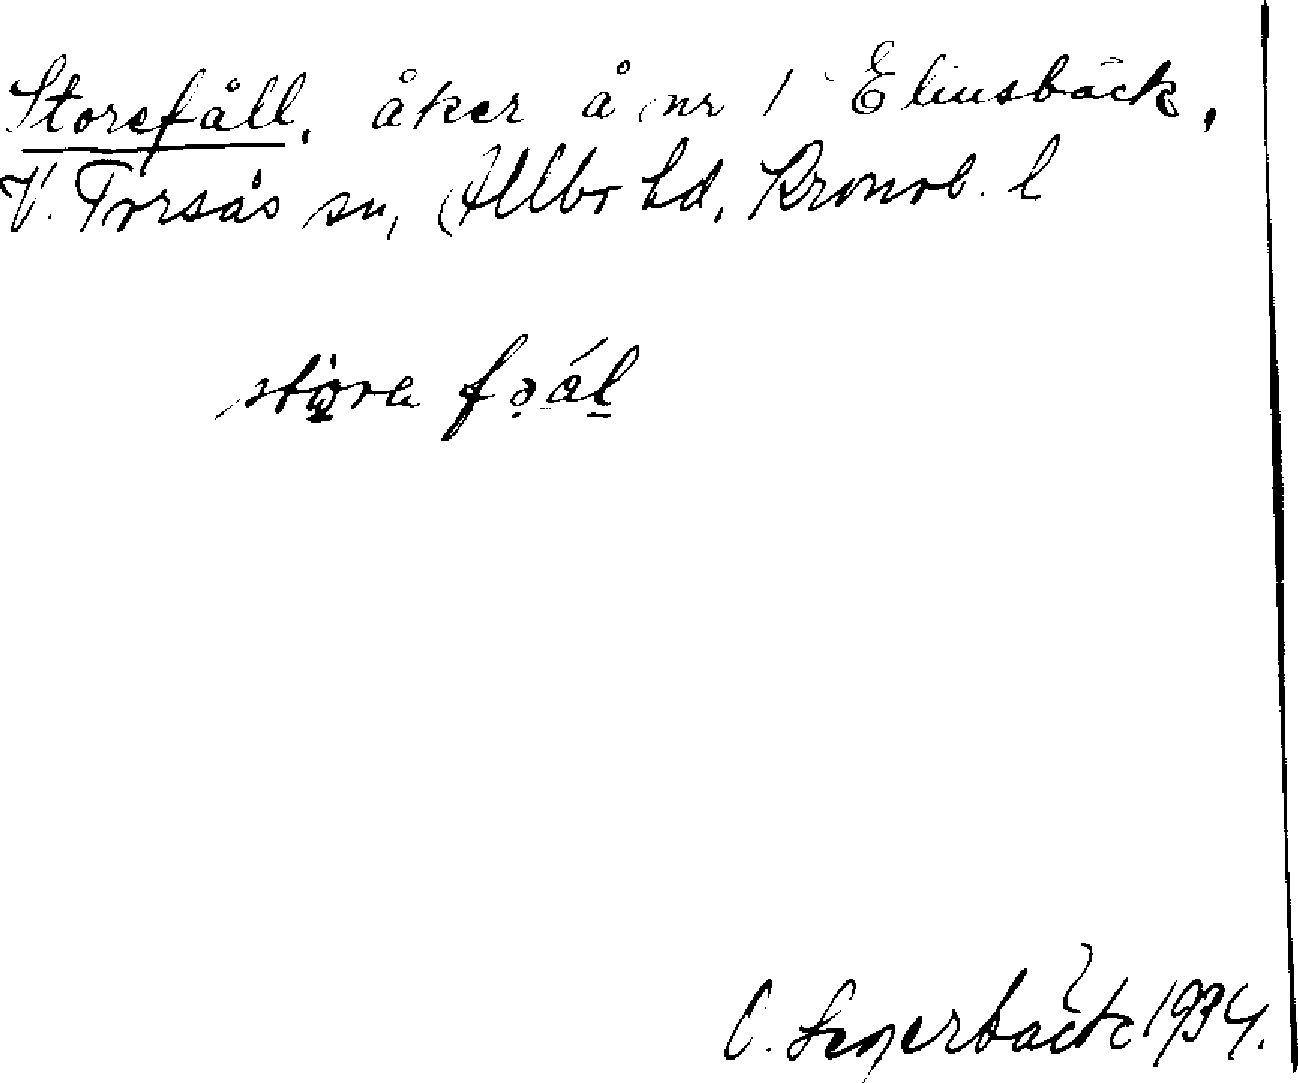 Storefåll, åker å nr 1 Elinsbäck,
V. Torsås sn, Allbo hd, Kronob. l
störa fəál
C. Segerbäck 1934.